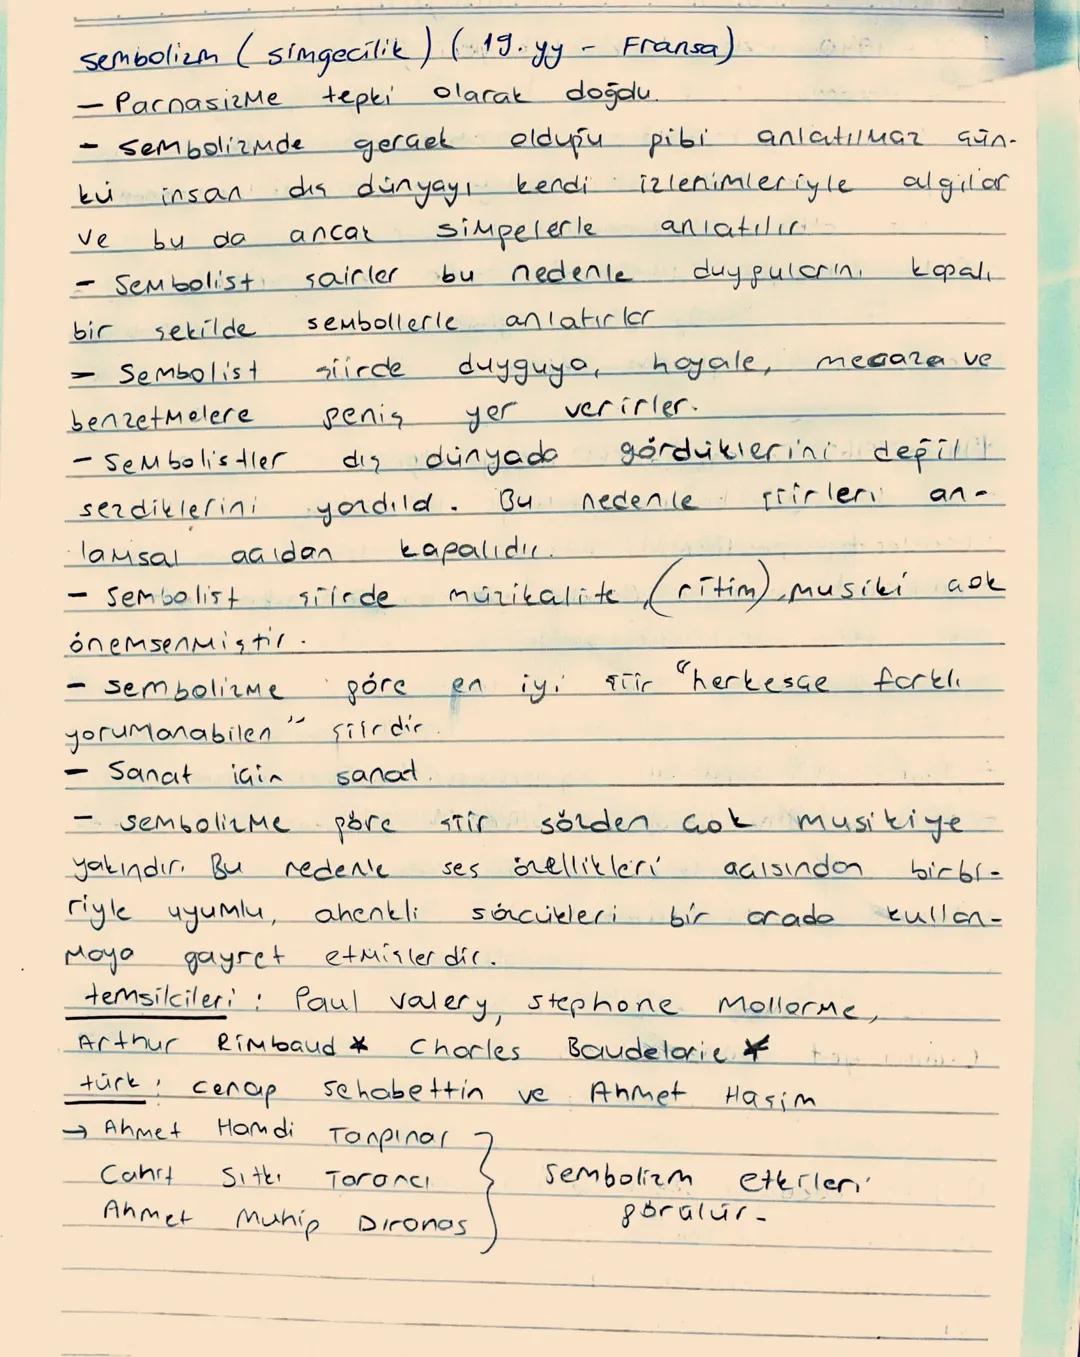 sembolizm ( simgecilik ) ( 19. yy - Fransa )
- Parnasizme tepki olarak doğdu.
- Sembolizmde gerçek olduğu gibi anlatılmaz çün-
kü insan dış dünyayı kendi izlenimleriyle algılar
ve bu da ancak simgelerle anlatılır.
- Sembolist şairler bu nedenle duygularını kapalı
bir şekilde sembollerle anlatırlar
- Sembolist şiirde duyguya, hayale, mecaza ve
benzetmelere geniş yer verirler.
- Sembolistler dış dünyada gördüklerini değil
sezdiklerini yazdıld. Bu nedenle şiirleri an-
lamsal açıdan kapalıdır.
- Sembolist şiirde müzikalite, (ritim) musiki çok
önemsenmiştir.
- sembolizme göre en iyi şiir "herkesçe farklı
yorumanabilen" şiirdir.
- Sanat için sanat.
- sembolizme göre şiir sözden çok musikiye
yakındır. Bu nedenle ses özellikleri açısından birbi-
riyle uyumlu, ahenkli sözcükleri bir arada kullan-
maya gayret etmişlerdir.
temsilcileri : Paul valery, stephane Mallarme,
Arthur Rimbaud * Charles Baudelarie *
türk : cenap sehabettin ve Ahmet Haşim
→ Ahmet Hamdi Tanpınar
Cahit Sıtkı Tarancı } Sembolizm etkileri
Ahmet Muhip Dıranas görülür.